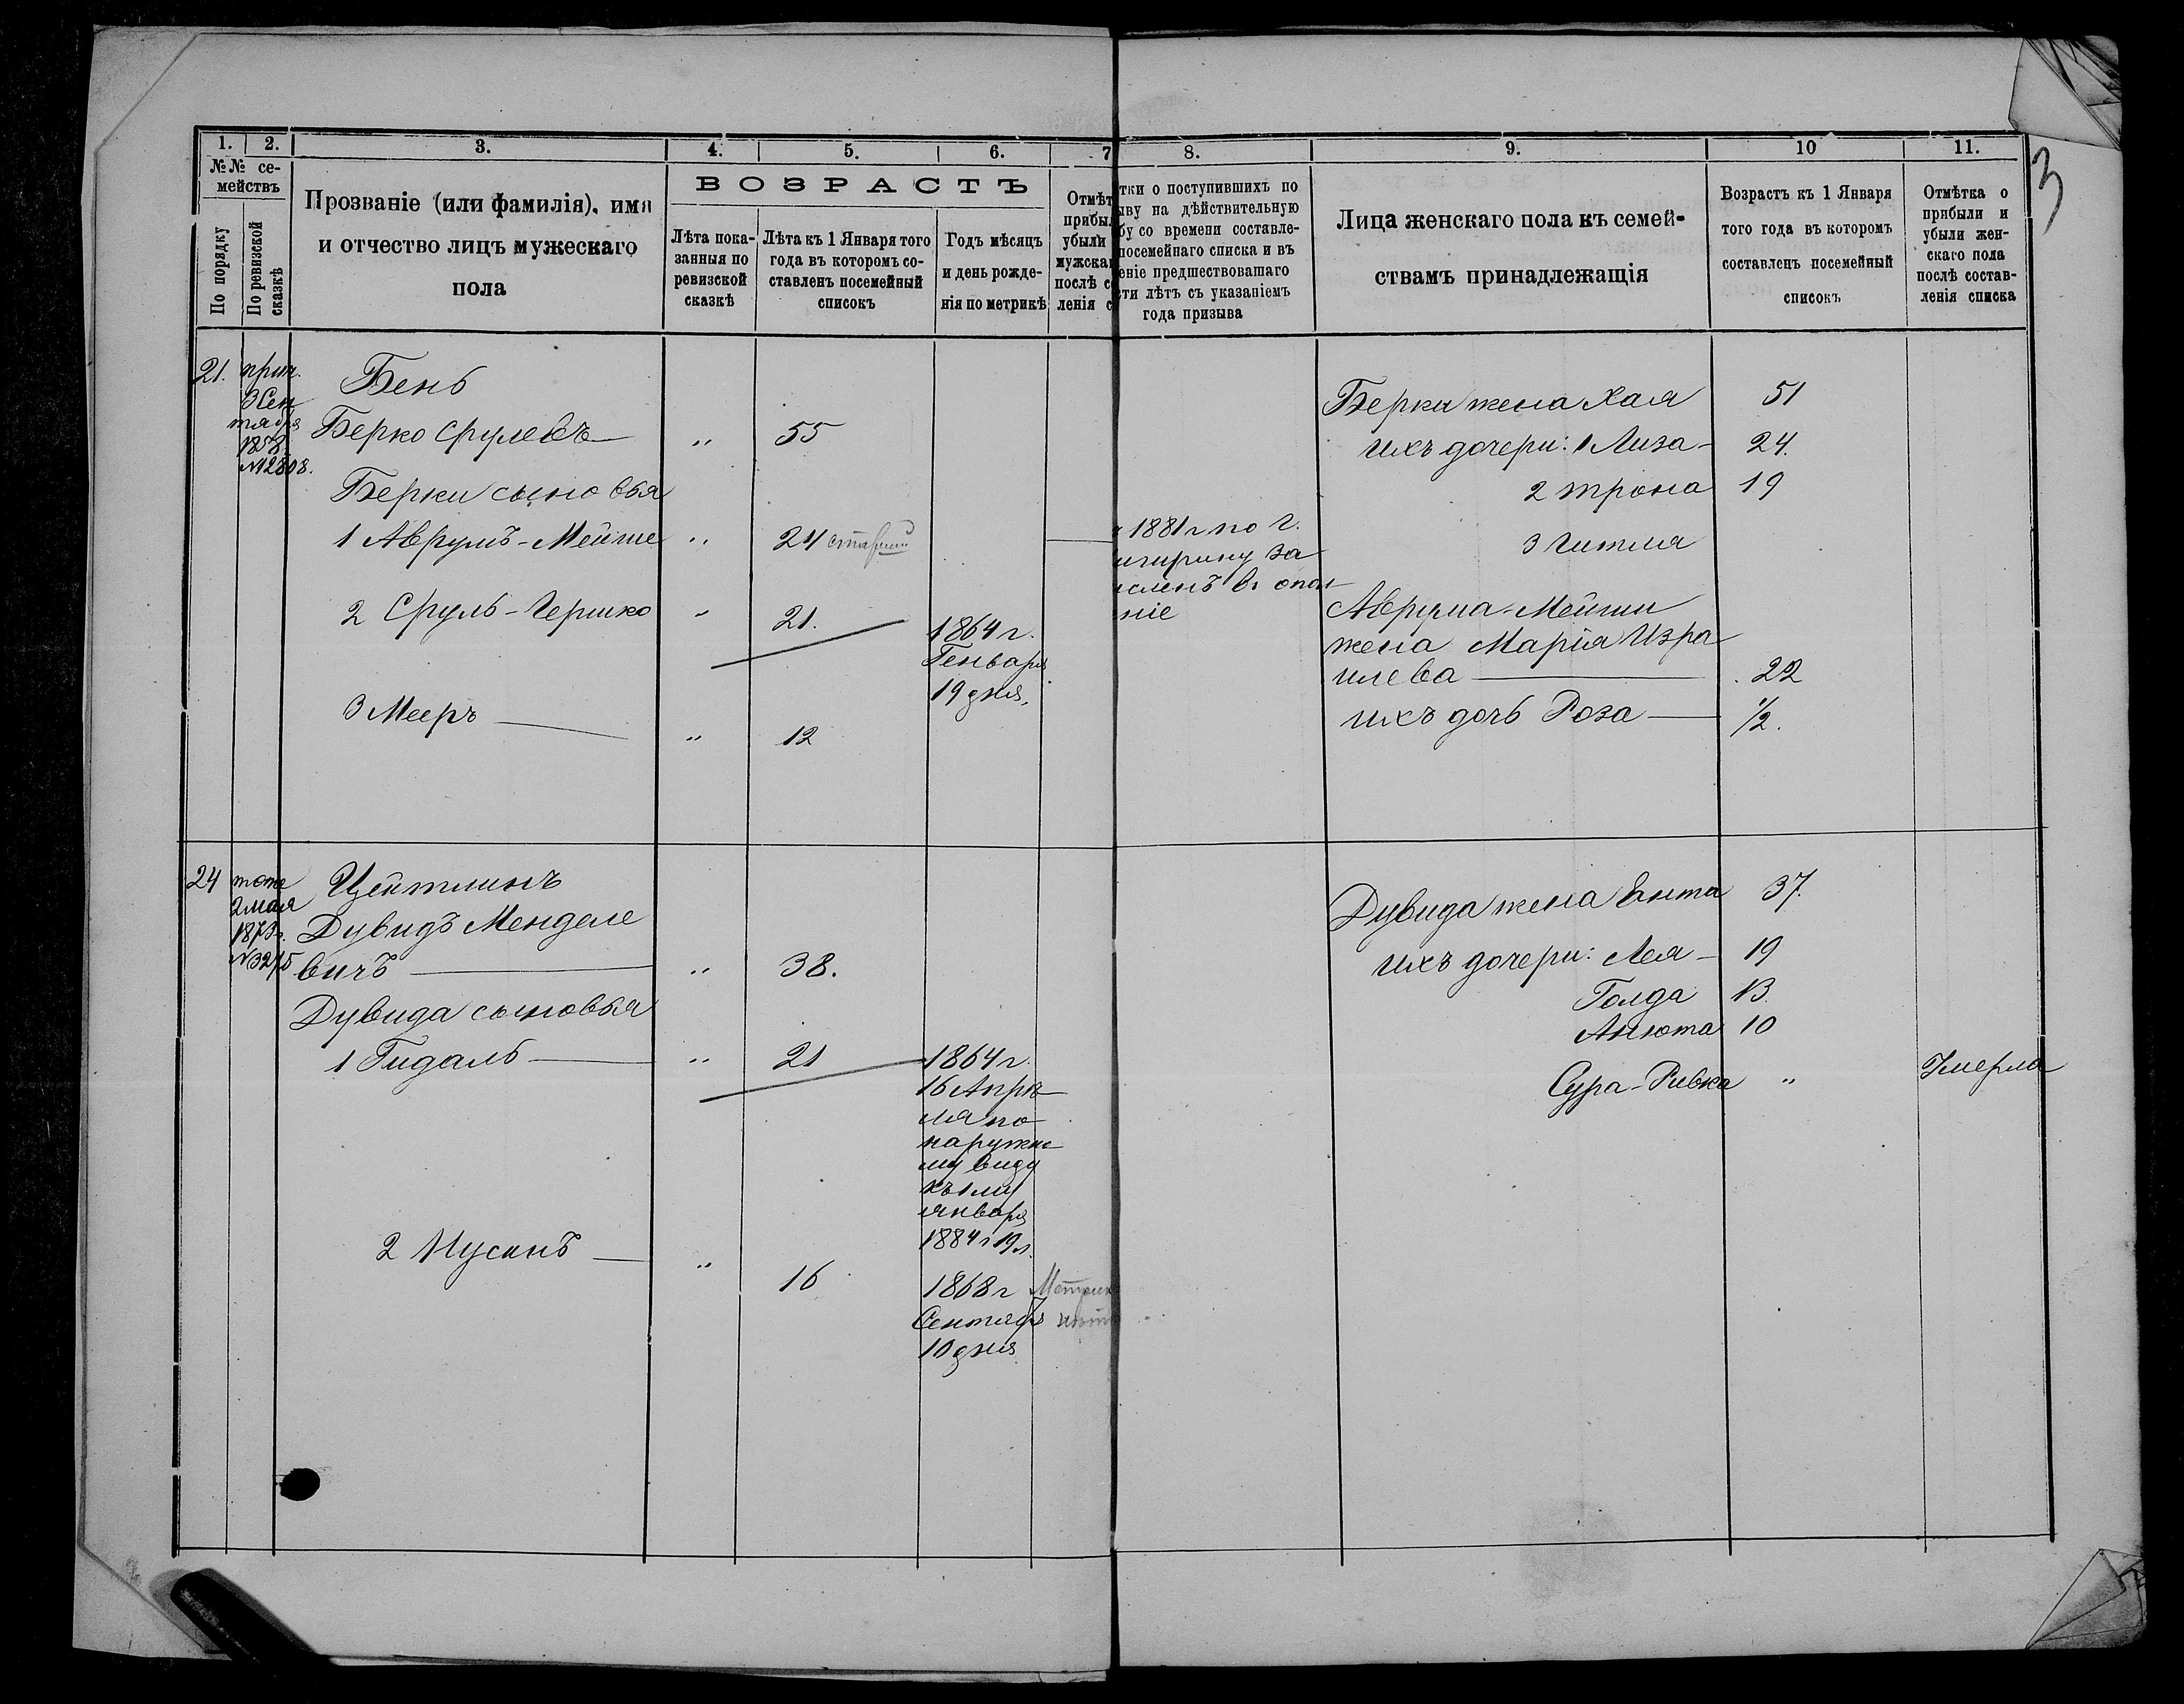 1. 2. 3. 4. 5. 6. 7
№№ се-
мействъ
По порядку
По ревизской
сказкѣ
Прозваніе (или фамилія), имя
и отчество лицъ мужескаго
пола
ВОЗРАСТЪ
Лѣта пока-
занныя по
ревизской
сказкѣ
Лѣта къ 1 Января того
года въ которомъ со-
ставленъ посемейный
списокъ
Годъ мѣсяцъ
и день рожде-
нія по метрикѣ
Отмѣт
прибыл
убыли
мужскаг
послѣ со
ленія с
21.
прич.
3 Сен
тября
1858
№12808.
Бень
Берко Срулевъ „ 55
Берки сыновья
1 Аврумъ-Мейше „ 24 старший
2 Сруль-Гершко „ 21.
1864 г.
Генваря
19 дня.
3 Мееръ „ 12
24
тоже
2 мая
1873г.
№3275
Цейтлинъ
Дувидъ Менделе
вичъ „ 38.
Дувида сыновья
1 Гидаль „ 21
1864 г.
16 Апрѣ
ля по
наружно
му виду
къ 1 му
января
1884 г 19 л.
2 Нусинъ „ 16
1868 г
Сентября
10 дня
8. 9. 10 11.
тки о поступившихъ по
ыву на дѣйствительную
бу со времени составле-
посемейнаго списка и въ
еніе предшествовашаго
сти лѣтъ съ указаніемъ
года призыва
Лица женскаго пола къ семей-
ствамъ принадлежащія
Возрастъ къ 1 Января
того года въ которомъ
составленъ посемейный
списокъ
Отмѣтка о
прибыли и
убыли жен-
скаго пола
послѣ состав-
ленія списка
3
Берки жена Хая 51
ихъ дочери: 1 Лиза 24.
2 трона 19
3 Гитля
1881 г по г.
игирину за
исленъ въ опол
ніе
Аврума-Мейши
жена Марія Изра
илева 22
ихъ дочь Роза 1/2.
Дувида жена Ента 37.
ихъ дочери: Лея 19
Голда 13.
Анюта 10
Сура-Ривка „ Умерла